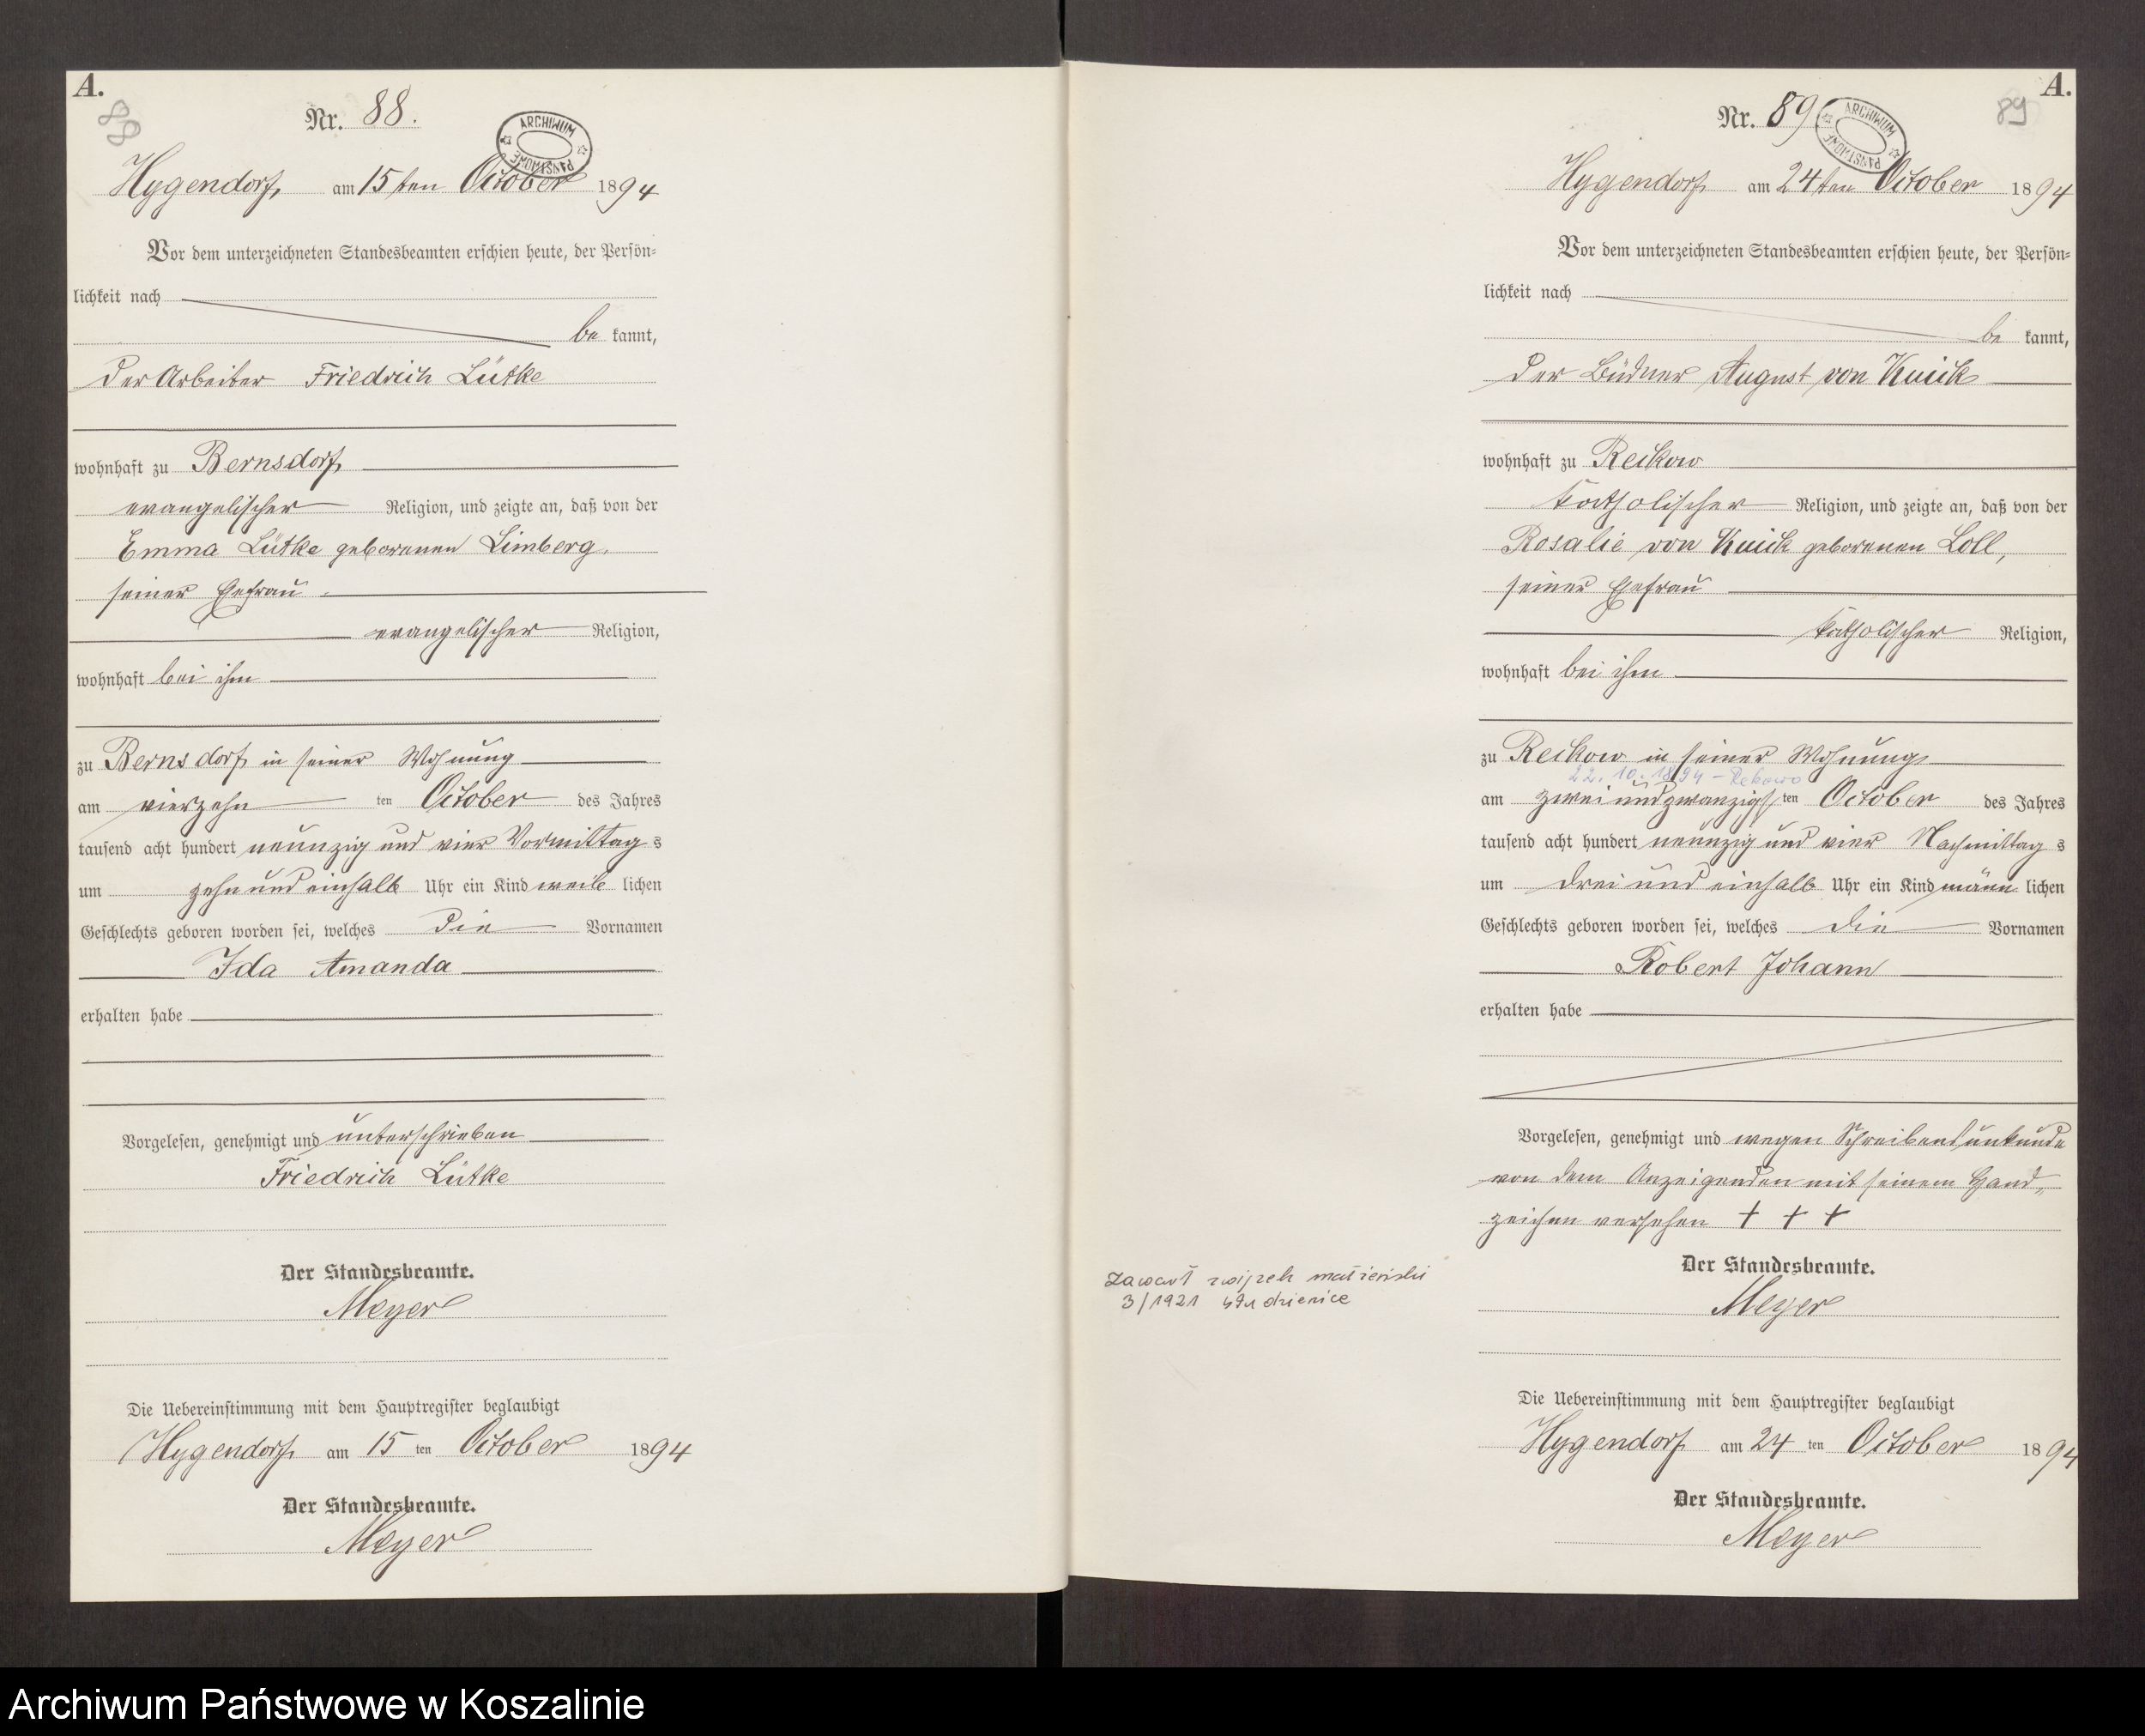 A.
88
Nr. 88.
ARCHIWUM PAŃSTWOWE
Hygendorf, am 15ten October 1894
Vor dem unterzeichneten Standesbeamten erschien heute, der Persön-
lichkeit nach
be kannt,
der Arbeiter Friedrich Lütke
wohnhaft zu Bernsdorf,
evangelischer Religion, und zeigte an, daß von der
Emma Lütke geborenen Limberg,
seiner Ehefrau
evangelischer Religion,
wohnhaft bei ihm
zu Bernsdorf in seiner Wohnung
am vierzehn ten October des Jahres
tausend acht hundert neunzig und vier Vormittag s
um zehn und einhalb Uhr ein Kind weib lichen
Geschlechts geboren worden sei, welches die Vornamen
Ida Amanda
erhalten habe
Vorgelesen, genehmigt und unterschrieben
Friedrich Lütke
Der Standesbeamte.
Meyer
Die Uebereinstimmung mit dem Hauptregister beglaubigt
Hygendorf, am 15 ten October 1894
Der Standesbeamte.
Meyer
A.
89
Nr. 89
ARCHIWUM PAŃSTWOWE
Hygendorf am 24ten October 1894
Vor dem unterzeichneten Standesbeamten erschien heute, der Persön-
lichkeit nach
be kannt,
der Büdner August von Kuick
wohnhaft zu Reckow
katholischer Religion, und zeigte an, daß von der
Rosalie von Kuick geborenen Loll,
seiner Ehefrau
katholischer Religion,
wohnhaft bei ihm
zu Reckow in seiner Wohnung
22. 10. 1894 - Rekowo
am zwei und zwanzigs ten October des Jahres
tausend acht hundert neunzig und vier Nachmittag s
um drei und einhalb Uhr ein Kind männ lichen
Geschlechts geboren worden sei, welches die Vornamen
Robert Johann
erhalten habe
Vorgelesen, genehmigt und wegen Schreibensunkunde
von dem Anzeigenden mit seinem Hand-
zeichen versehen + + +
Der Standesbeamte.
Meyer
Die Uebereinstimmung mit dem Hauptregister beglaubigt
Hygendorf am 24 ten October 1894
Der Standesbeamte.
Meyer
zawarł związek małżeński
3/1921
Archiwum Państwowe w Koszalinie